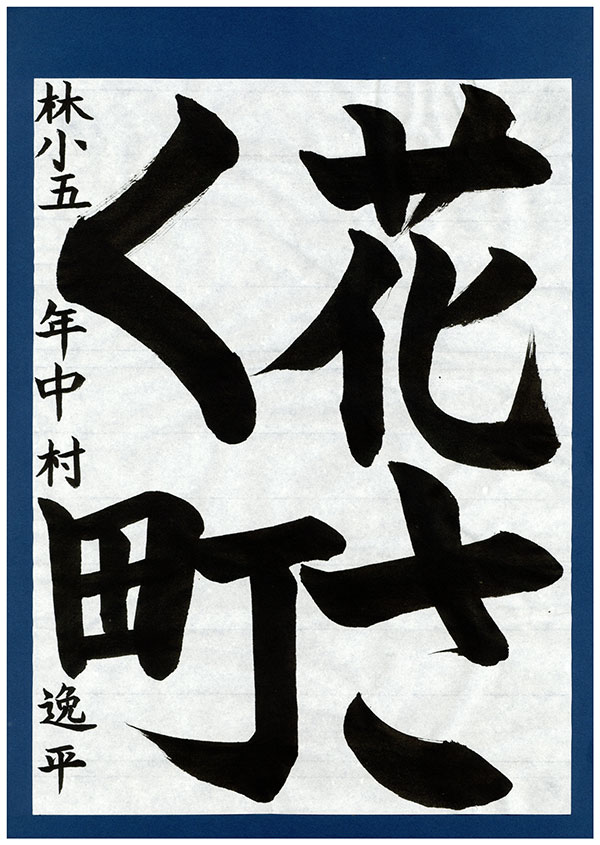 花さ
く町
林小五年中村逸平